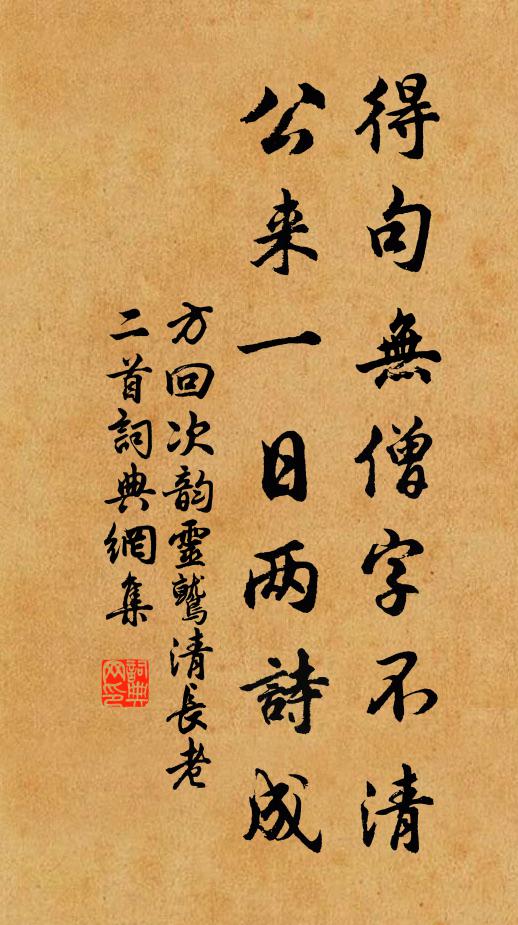 得句無僧字不清
公来一日两詩成
方回次韵靈鷲清長老
二首詞典網集
詞典網印